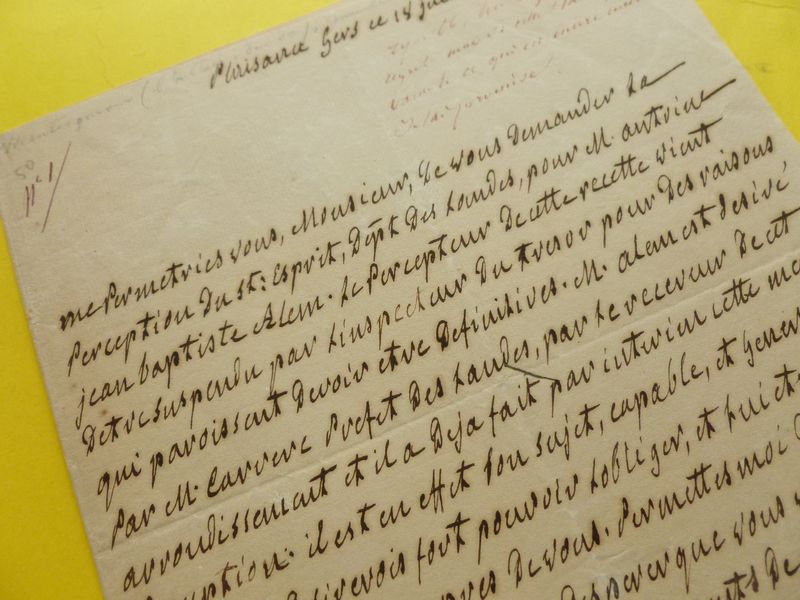 Plaisance Gers ce 18
n° 1
50
me Permetriés vous, Monsieur, de vous demander la
Perception du St: Esprit, Dépt Des Landes, pour M. antoine
jean baptiste Alem. Le Percepteur De cette recette vient
Detre suspendu par l'inspecteur Du tresor pour Des raisons
qui paroissent Devoir etre Definitives. M. alem est desiré
Par M. Carrere Prefet Des Landes, par le receveur De cet
arrondissement et il a Deja fait par interim cette
il est en effet bon sujet, capable, et
fort pouvoir l'obliger, et lui
De vous. Permettes moi
Desperer que vous